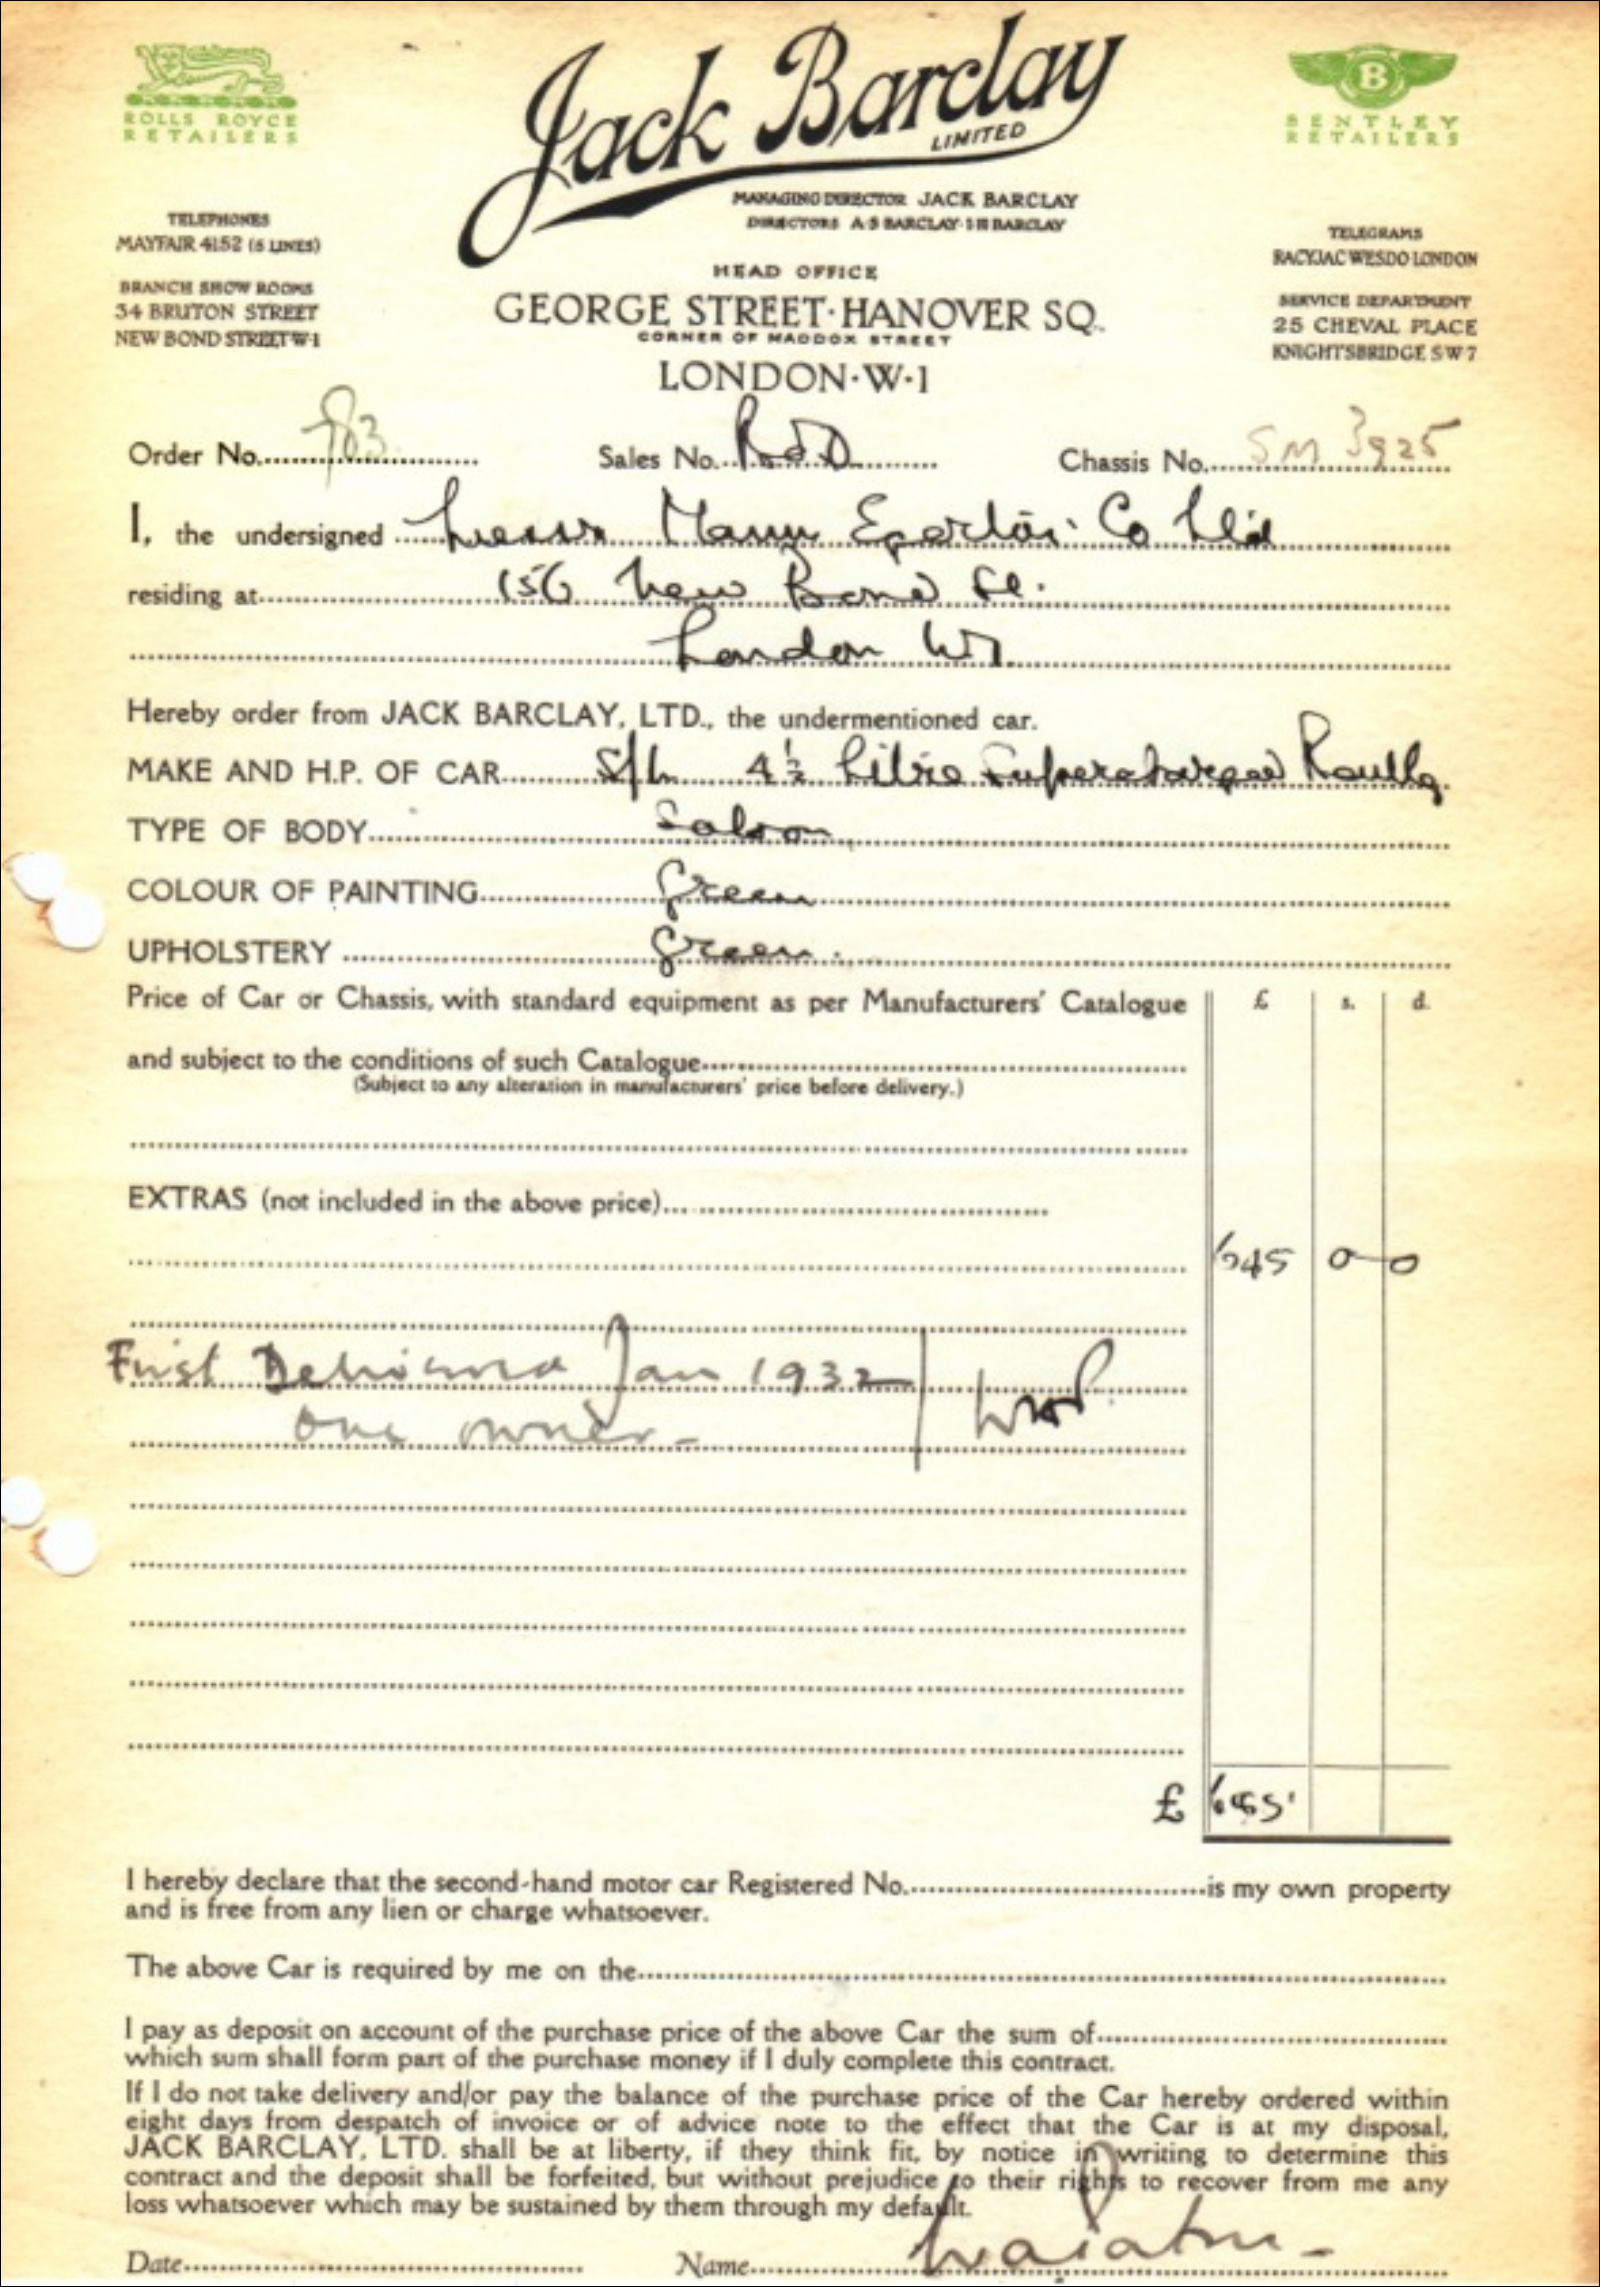 ROLLS ROYCE
RETAILERS
Jack Barclay
LIMITED
BENTLEY
RETAILERS
MANAGING DIRECTOR JACK BARCLAY
DIRECTORS A·S BARCLAY·I·H BARCLAY
TELEPHONES
MAYFAIR 4152 (6 LINES)
BRANCH SHOW ROOMS
34 BRUTON STREET
NEW BOND STREET W·1
HEAD OFFICE
GEORGE STREET·HANOVER SQ.
CORNER OF MADDOX STREET
LONDON·W·1
TELEGRAMS
RACYJAC WESDO LONDON
SERVICE DEPARTMENT
25 CHEVAL PLACE
KNIGHTSBRIDGE SW7
Order No. Sales No. Chassis No. SM 3925
I, the undersigned Messrs Mann Egerton Co Ltd
residing at 156 New Bond St.
London W1
Hereby order from JACK BARCLAY, LTD., the undermentioned car.
MAKE AND H.P. OF CAR S/h 4½ Litre Supercharged
TYPE OF BODY Saloon
COLOUR OF PAINTING Green
UPHOLSTERY Green.
Price of Car or Chassis, with standard equipment as per Manufacturers' Catalogue £ s. d.
and subject to the conditions of such Catalogue
(Subject to any alteration in manufacturers' price before delivery.)
EXTRAS (not included in the above price)
645 0 0
First Delivered Jan 1932
one owner -
£
I hereby declare that the second-hand motor car Registered No. is my own property
and is free from any lien or charge whatsoever.
The above Car is required by me on the
I pay as deposit on account of the purchase price of the above Car the sum of
which sum shall form part of the purchase money if I duly complete this contract.
If I do not take delivery and/or pay the balance of the purchase price of the Car hereby ordered within
eight days from despatch of invoice or of advice note to the effect that the Car is at my disposal,
JACK BARCLAY, LTD. shall be at liberty, if they think fit, by notice in writing to determine this
contract and the deposit shall be forfeited, but without prejudice to their rights to recover from me any
loss whatsoever which may be sustained by them through my default.
Date Name